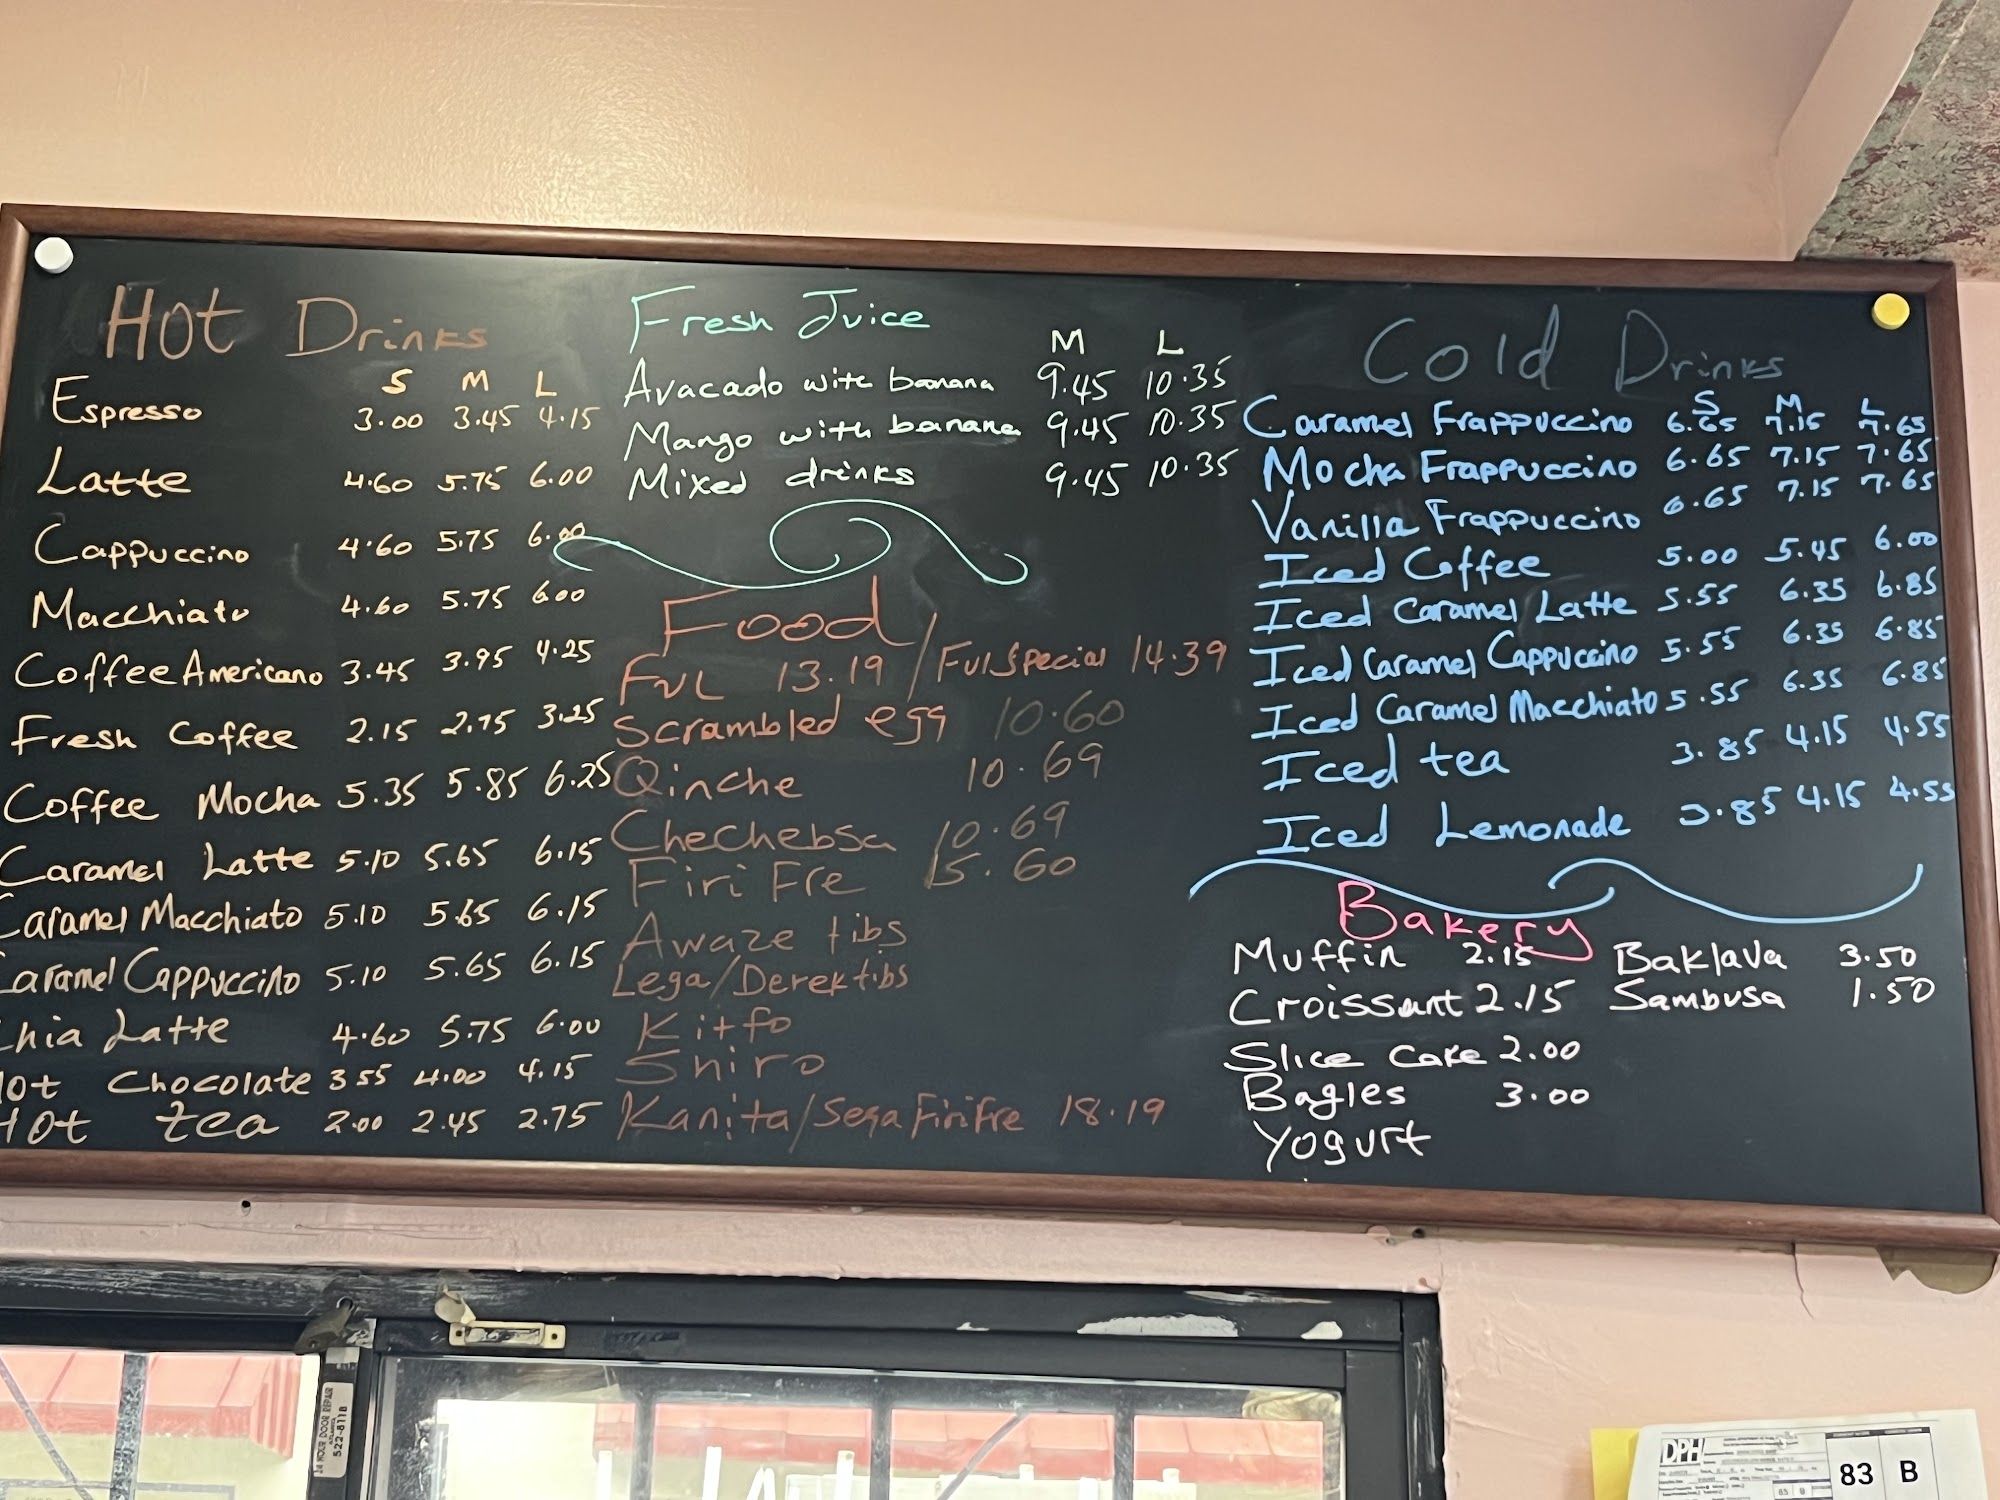 Hot Drinks
S M L
Espresso 3.00 3.45 4.15
Latte 4.60 5.75 6.00
Cappuccino 4.60 5.75 6.00
Macchiato 4.60 5.75 6.00
Coffee Americano 3.45 3.95 4.25
Fresh Coffee 2.15 2.75 3.25
Coffee Mocha 5.35 5.85 6.25
Caramel Latte 5.10 5.65 6.15
Caramel Macchiato 5.10 5.65 6.15
Caramel Cappuccino 5.10 5.65 6.15
Chia Latte 4.60 5.75 6.00
Hot Chocolate 3.55 4.00 4.15
Hot tea 2.00 2.45 2.75
Fresh Juice
M L
Avacado with banana 9.45 10.35
Mango with banana 9.45 10.35
Mixed drinks 9.45 10.35
Food
FUL 13.19 / Ful Special 14.39
Scrambled egg 10.60
Qinche 10.69
Chechebsa 10.69
Firi Fre 15.60
Awaze tibs
Lega/Derek tibs
Kitfo
Shiro
Kanita/Sega Firifre 18.19
Cold Drinks
S M L
Caramel Frappuccino 6.65 7.15 7.65
Mocha Frappuccino 6.65 7.15 7.65
Vanilla Frappuccino 6.65 7.15 7.65
Iced Coffee 5.00 5.45 6.00
Iced Caramel Latte 5.55 6.35 6.85
Iced Caramel Cappuccino 5.55 6.35 6.85
Iced Caramel Macchiato 5.55 6.35 6.85
Iced tea 3.85 4.15 4.55
Iced Lemonade 3.85 4.15 4.55
Bakery
Muffin 2.15
Croissant 2.15
Slice Cake 2.00
Bagles 3.00
Yogurt
Baklava 3.50
Sambusa 1.50
24 HOUR DOOR REPAIR
522-8118
DPH
83 B